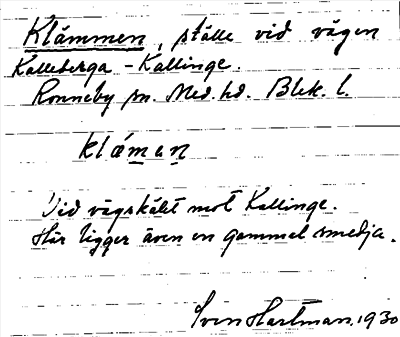 Klämmen, ställe vid vägen
Kalleberga - Kallinge.
Ronneby sn. Med. hd. Blek. l.
klä́man
Vid vägskälet mot Kallinge.
Här ligger även en gammal smedja.
Sven Hartman. 1930